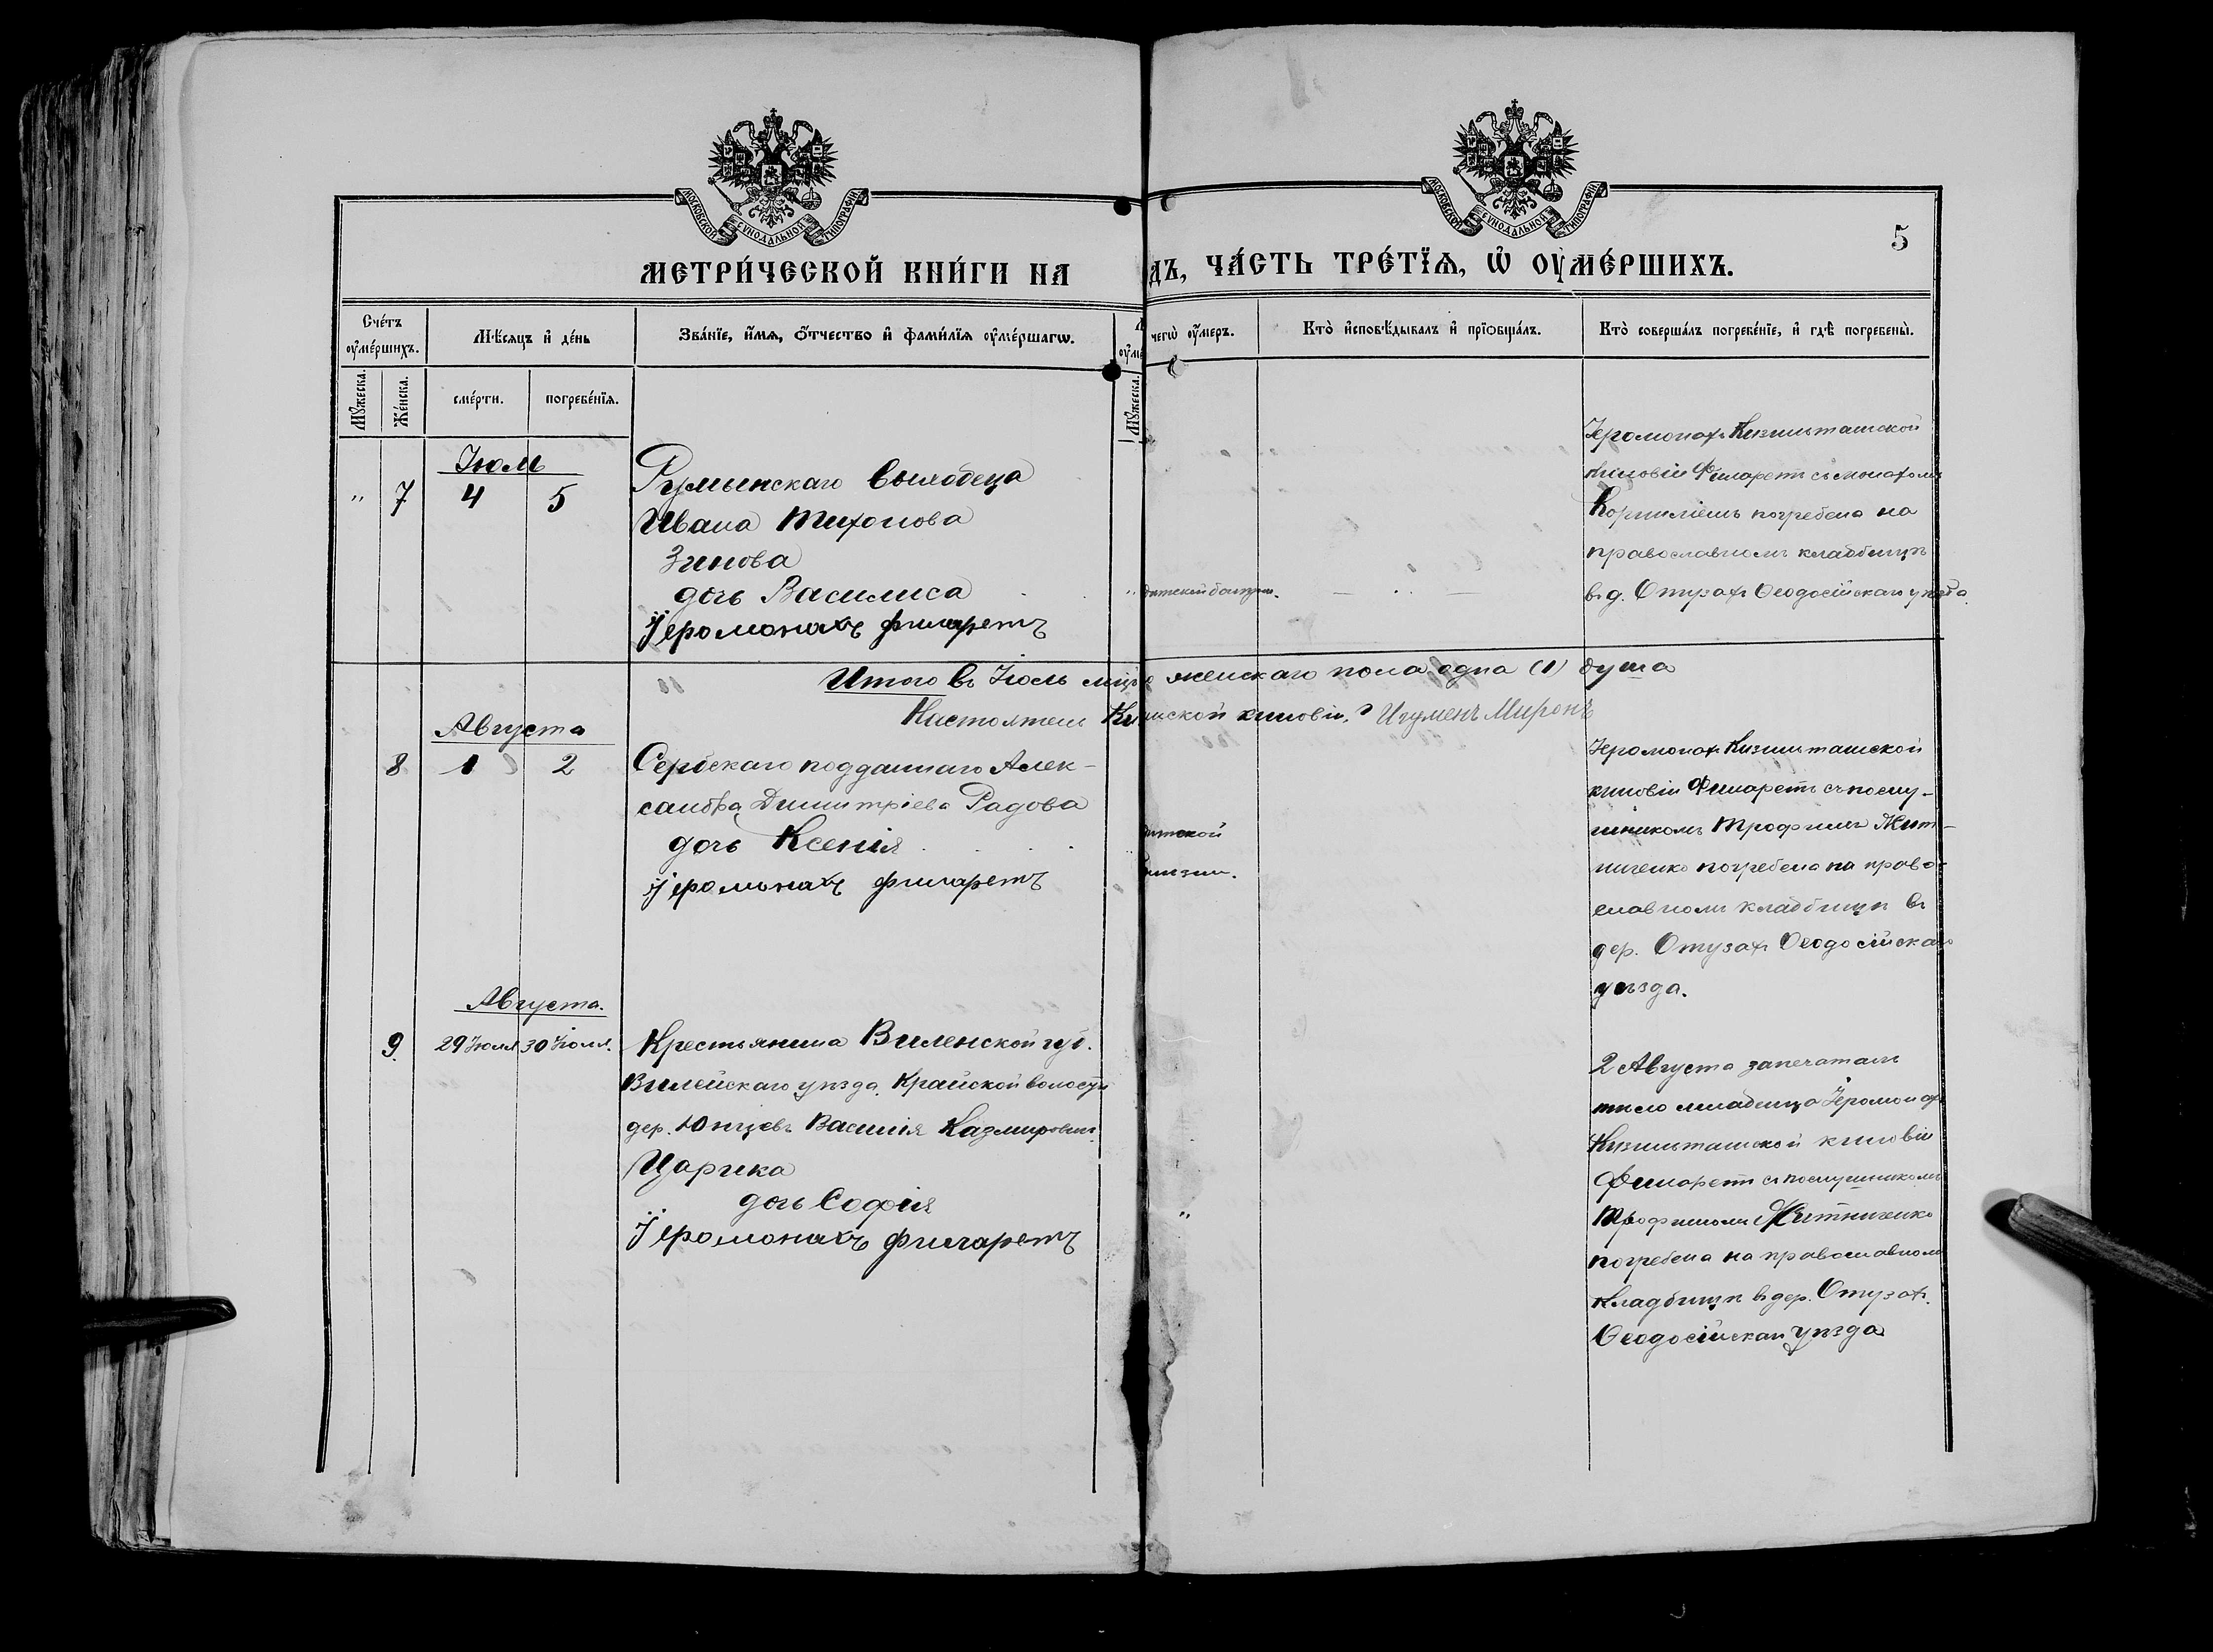 МОСКОВСКОЙ СѴНОДАЛЬНОЙ ТИПОГРАФІИ
МОСКОВСКОЙ СѴНОДАЛЬНОЙ ТИПОГРАФІИ
5
МЕТРИ́ЧЕСКОЙ КНИ́ГИ НА
дъ, ЧА́СТЬ ТРЕ́ТЇѦ, Ѡ҆ ОУ҆МЕ́РШИХЪ.
Сче́тъ оу҆ме́ршихъ.
Мѣ́сяцъ и҆ де́нь
Зва́нїе, и҆́мя, ѻ҆́тчество и҆ фами́лїя оу҆ме́ршагѡ.
чегѡ̀ оу҆́меръ.
Кто̀ и҆сповѣ́дывалъ и҆ прїѡбща́лъ.
Кто̀ соверша́лъ погребе́нїе, и҆ гдѣ̀ погребены̀.
Мꙋ́жеска.
Же́нска.
сме́рти.
погребе́нїя.
Мꙋ́жеска.
Іюль
" 7 4 5
Румынскаго выходца
Ивана Тихонова
Зинова
дочь Василиса
Іеромонахъ Филаретъ
Іеромонахъ Кизильташской
киновіи Филаретъ съ монахомъ
Корниліемъ погребена на
православномъ кладбищѣ
въ д. Отузахъ Ѳеодосійскаго уѣзда.
Итого въ Іюль мѣс женскаго пола одна (1) душа
Настоятель Ки ской киновіи, Игуменъ Миронъ
Августа
8 1 2
Сербскаго подданнаго Алек-
сандра Димитріева Радова
дочь Ксенія
Іеромонахъ Филаретъ
Іеромонахъ Кизильташской
киновіи Филаретъ съ послу-
шникомъ Трофимъ Жит-
ниченко погребена на право-
славномъ кладбищѣ въ
дер. Отузахъ Ѳеодосійскаго
уѣзда.
Августа.
9. 29 Іюля 30 Іюля.
Крестьянина Виленской губ.
Вилейскаго уѣзда Крайской волости
дер. Юнцевъ Василія Казмирова
Царика
дочь Софія
Іеромонахъ Филаретъ
2 Августа запечаталъ
тѣло младенца Іеромонахъ
Кизильташской киновіи
Филаретъ съ послушникомъ
Трофимомъ Житниченко
погребена на православномъ
кладбищѣ въ дер. Отузахъ.
Ѳеодосійскаго уѣзда